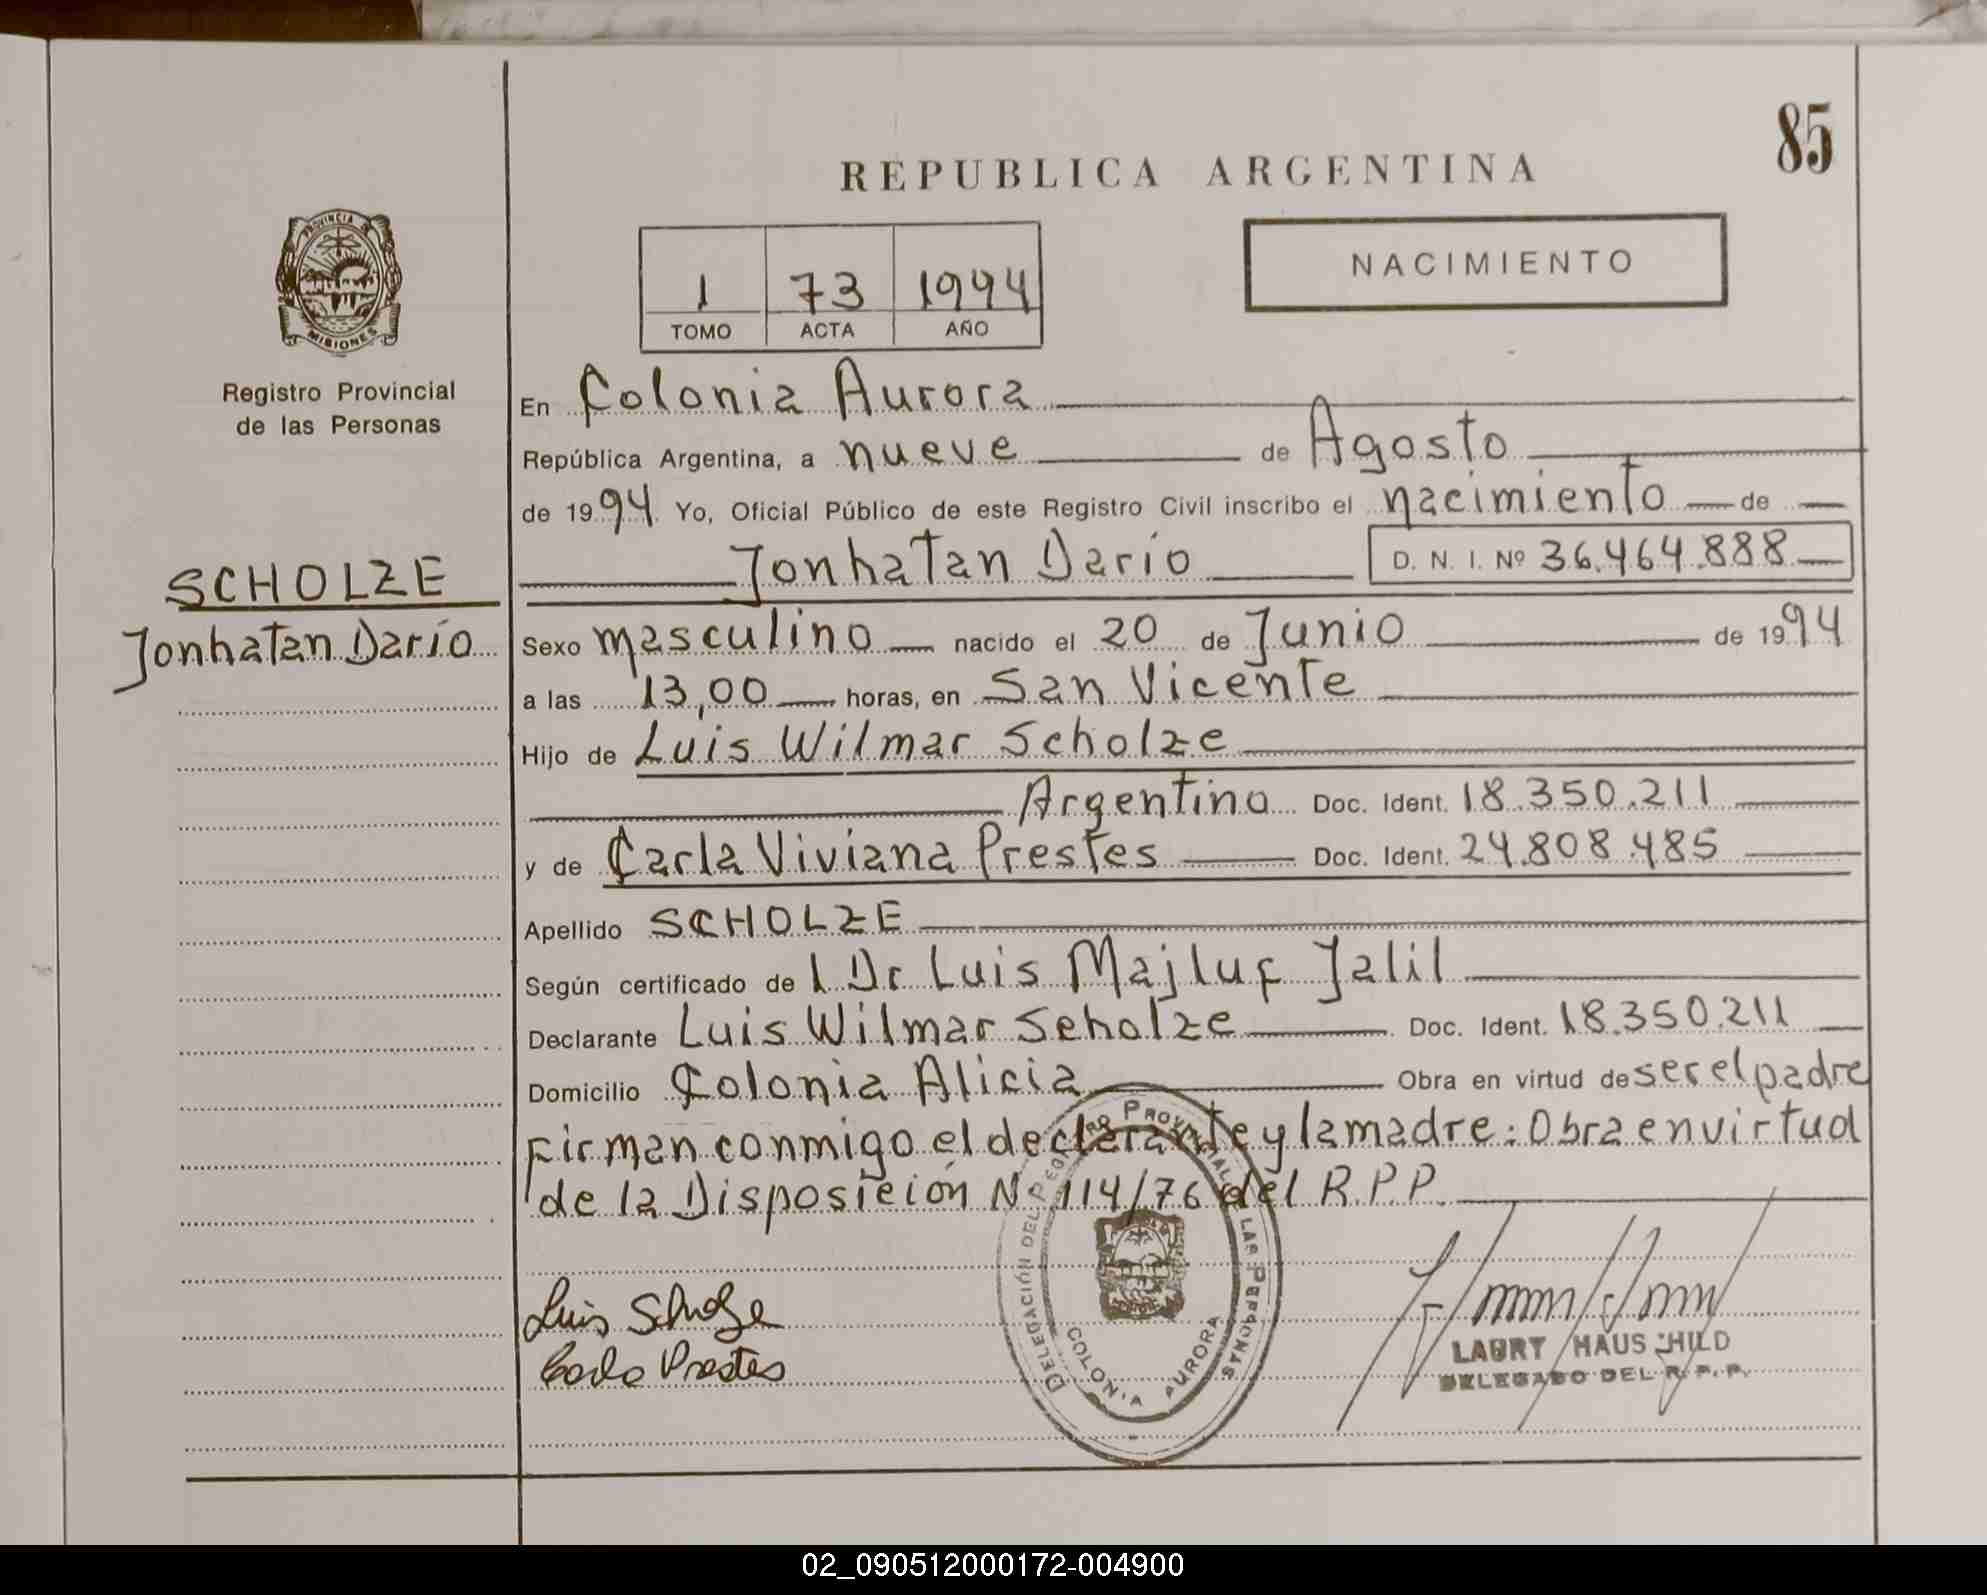 85
REPUBLICA ARGENTINA
PROVINCIA DE
MISIONES
Registro Provincial
de las Personas
1 73 1994
TOMO ACTA AÑO
NACIMIENTO
En Colonia Aurora
República Argentina, a nueve de Agosto
de 1994 Yo, Oficial Público de este Registro Civil inscribo el nacimiento de
Jonhatan Darío D. N. I. Nº 36.464.888
SCHOLZE
Jonhatan Darío
Sexo masculino nacido el 20 de Junio de 1994
a las 13,00 horas, en San Vicente
Hijo de Luis Wilmar Scholze
Argentino Doc. Ident. 18.350.211
y de Carla Viviana Prestes Doc. Ident. 24.808.485
Apellido SCHOLZE
Según certificado de l Dr Luis Majluf Jalil
Declarante Luis Wilmar Scholze Doc. Ident. 18.350.211
Domicilio Colonia Alicia Obra en virtud de ser el padre
Firman conmigo el declarante y la madre: Obra en virtud
de la Disposición Nº 114/76 del R.P.P.
DELEGACIÓN DEL REGISTRO PROVINCIAL DE LAS PERSONAS
COLONIA AURORA
Luis Scholze
Carla Prestes
LAURY HAUSCHILD
DELEGADO DEL R.P.P.
02_090512000172-004900